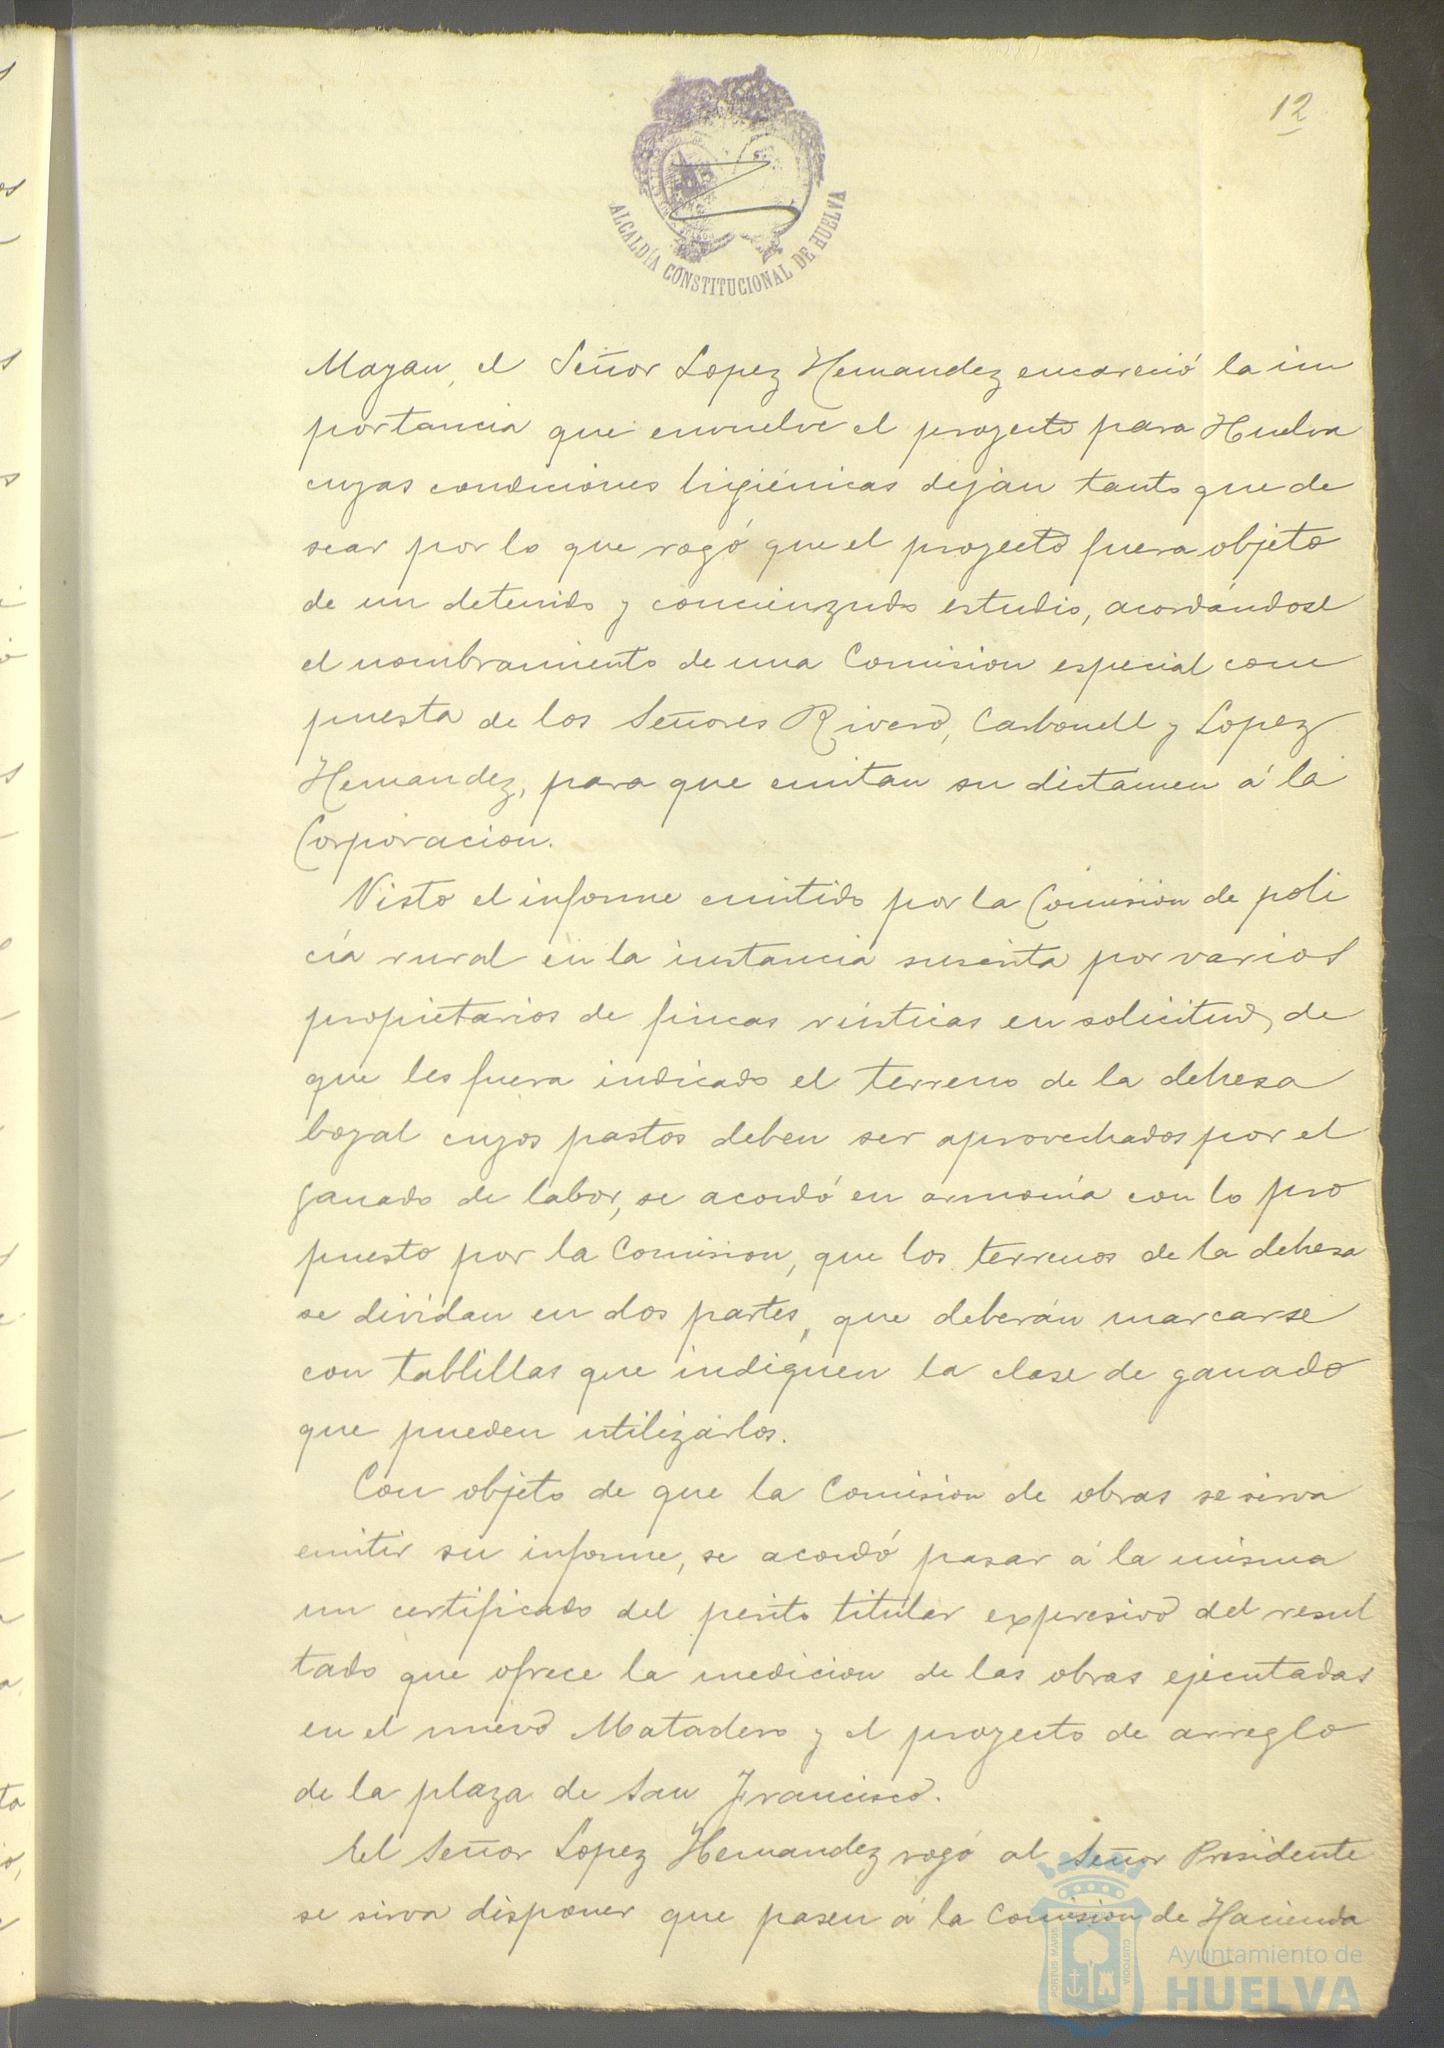 12
ALCALDÍA CONSTITUCIONAL DE HUELVA
Mayan, el Señor Lopez Hernandez encareció la im
portancia que envuelve el proyecto para Huelva
cuyas condiciones higiénicas dejan tanto que de
sear por lo que rogó que el proyecto fuera objeto
de un detenido y concienzudo estudio, acordándose
el nombramiento de una Comision especial com
puesta de los Señores Rivero, Carbonell y Lopez
Hernandez, para que emitan su dictamen á la
Corporacion.
Visto el informe emitido por la Comision de poli
cía rural en la instancia suscrita por varios
propietarios de fincas rústicas en solicitud, de
que les fuera indicado el terreno de la dehesa
boyal cuyos pastos deben ser aprovechados por el
ganado de labor, se acordó en armonía con lo pro
puesto por la Comision, que los terrenos de la dehesa
se dividan en dos partes, que deberán marcarse
con tablillas que indiquen la clase de ganado
que pueden utilizarlos.
Con objeto de que la Comision de obras se sirva
emitir su informe, se acordó pasar á la misma
un certificado del perito titular expresivo del resul
tado que ofrece la medicion de las obras ejecutadas
en el nuevo Matadero y el proyecto de arreglo
de la plaza de San Francisco.
El Señor Lopez Hernandez rogó al Señor Presidente
se sirva disponer que pasen á la Comision de Hacienda
PORTUS MARIS
CUSTODIA
Ayuntamiento de
HUELVA